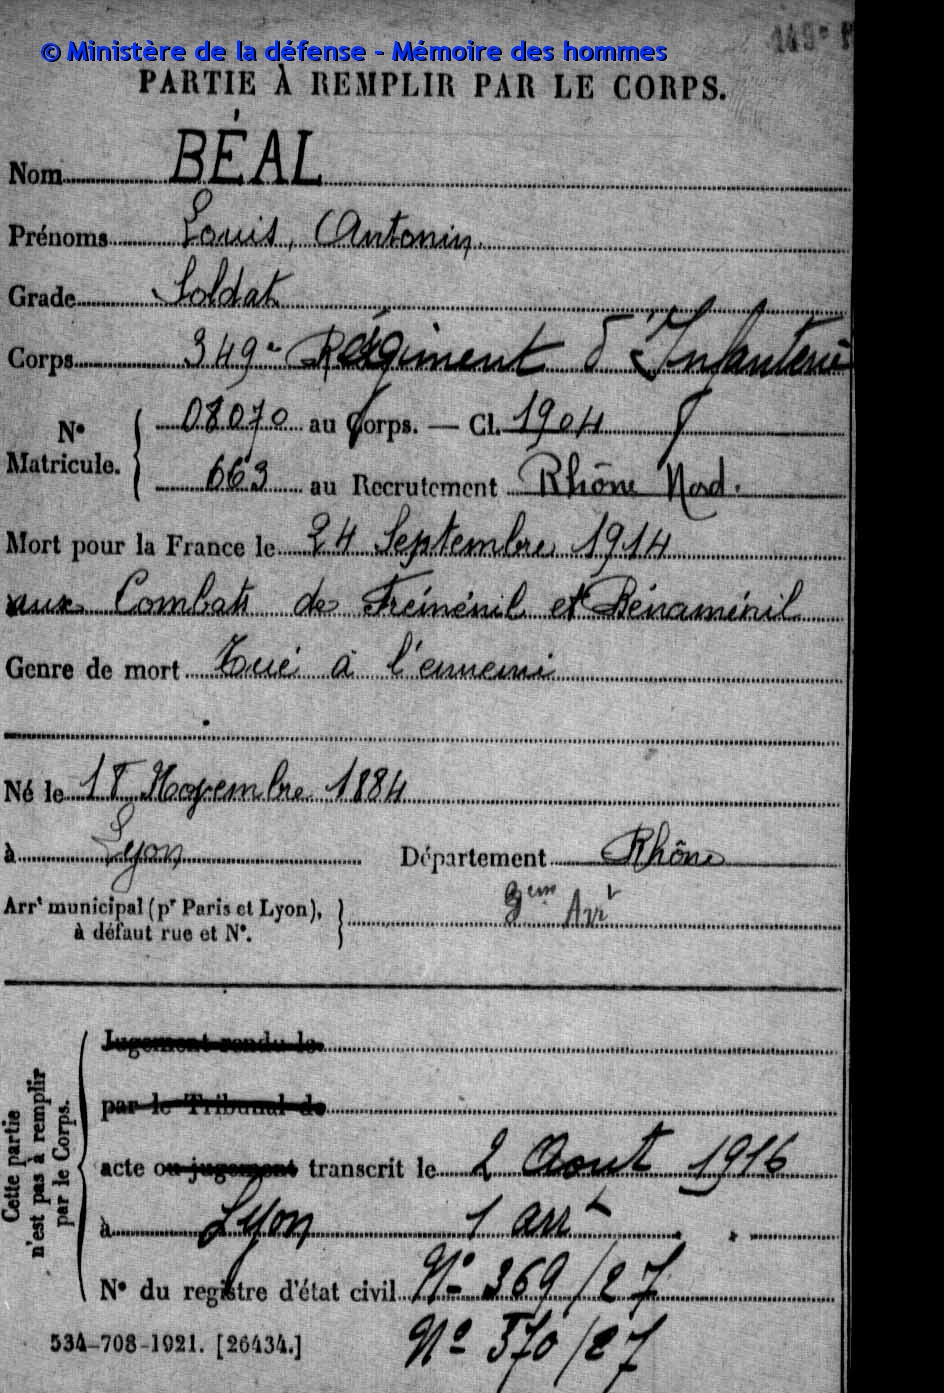 © Ministère de la défense - Mémoire des hommes
149e
PARTIE À REMPLIR PAR LE CORPS.
Nom BÉAL
Prénoms Louis, Antonin,
Grade Soldat
Corps 349e Régiment d'Infanterie
N° Matricule. 08070 au Corps. — Cl. 1904
663 au Recrutement Rhône Nord.
Mort pour la France le 24 Septembre 1914
aux Combats de Fréménil et Bénaménil
Genre de mort Tué à l'ennemi
Né le 18 Novembre 1884
à Lyon Département Rhône
Arrt municipal (pr Paris et Lyon), à défaut rue et N°. 3em Arrt
Cette partie n'est pas à remplir par le Corps.
Jugement rendu le
par le Tribunal de
acte ou jugement transcrit le 2 Aout 1916
à Lyon 1 arrt
N° du registre d'état civil N° 369/27
534-708-1921. [26434.] N° 570/27